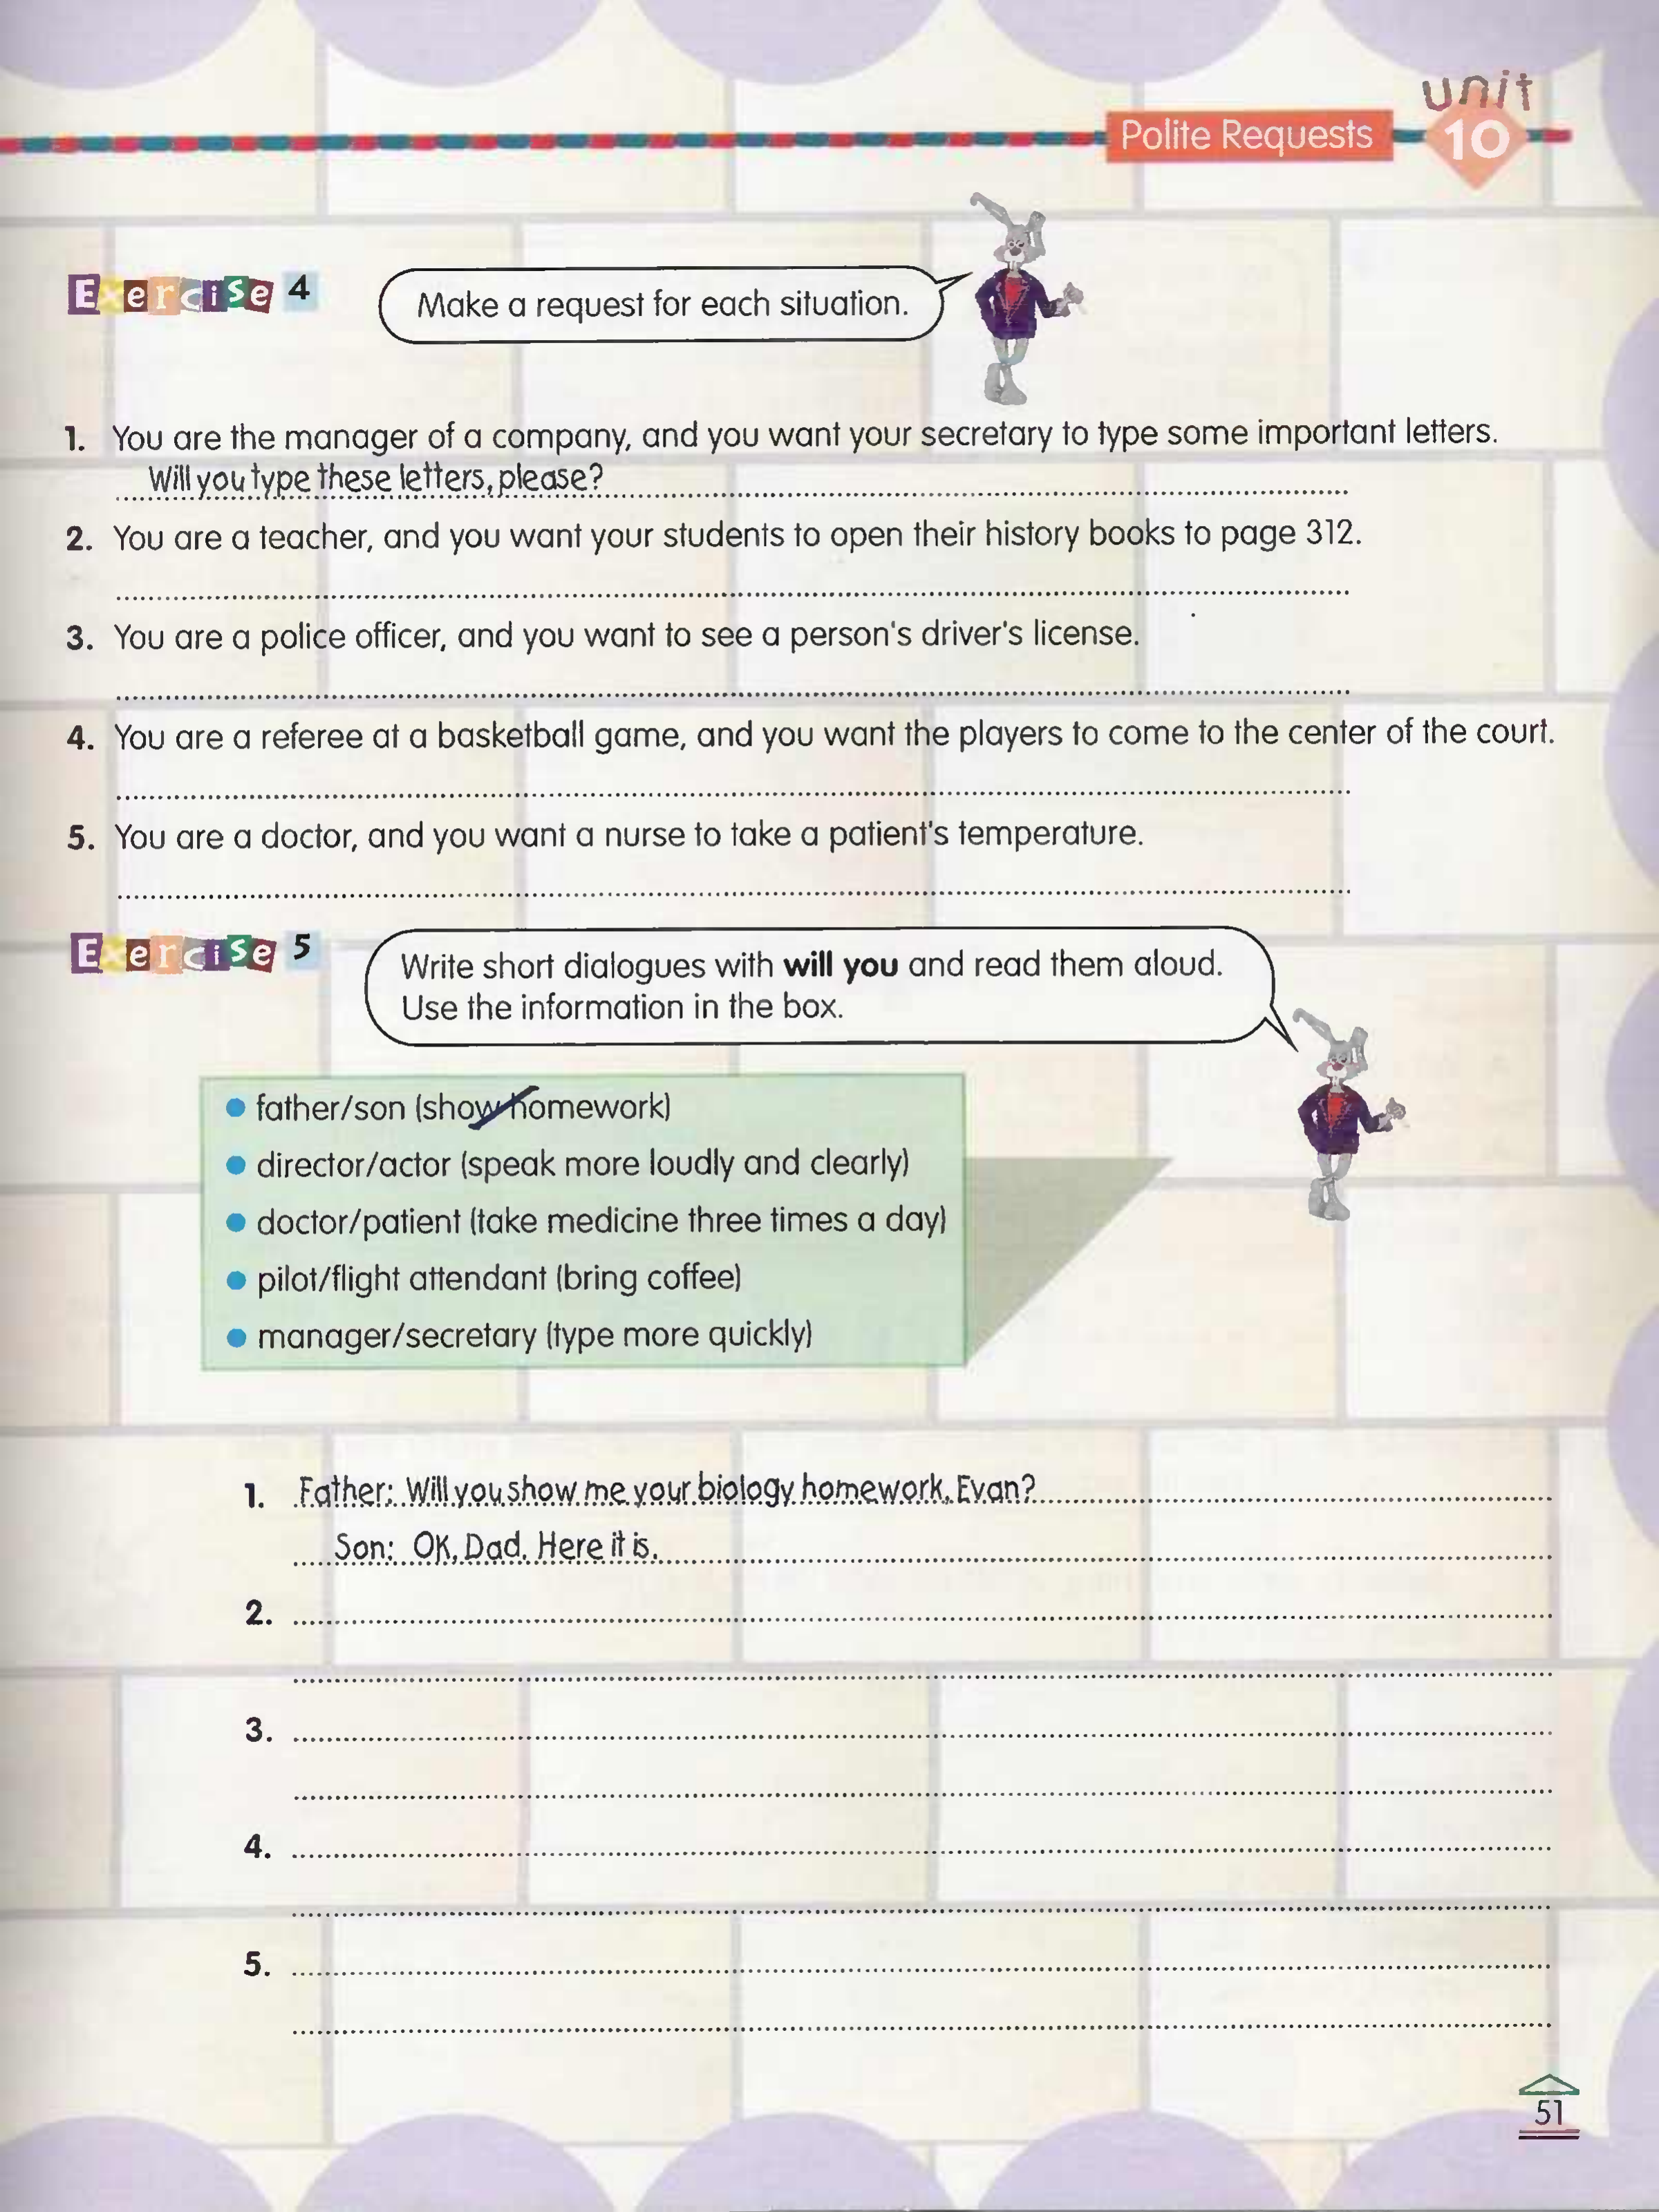 unit
Polite Requests
10
Exercise 4
Make a request for each situation.
1. You are the manager of a company, and you want your secretary to type some important letters.
Will you type these letters, please?
2. You are a teacher, and you want your students to open their history books to page 312.
3. You are a police officer, and you want to see a person's driver's license.
4. You are a referee at a basketball game, and you want the players to come to the center of the court.
5. You are a doctor, and you want a nurse to take a patient's temperature.
Exercise 5
Write short dialogues with will you and read them aloud.
Use the information in the box.
• father/son (show homework)
• director/actor (speak more loudly and clearly)
• doctor/patient (take medicine three times a day)
• pilot/flight attendant (bring coffee)
• manager/secretary (type more quickly)
1. Father: Will you show me your biology homework, Evan?
Son: OK, Dad. Here it is.
2.
3.
4.
5.
51